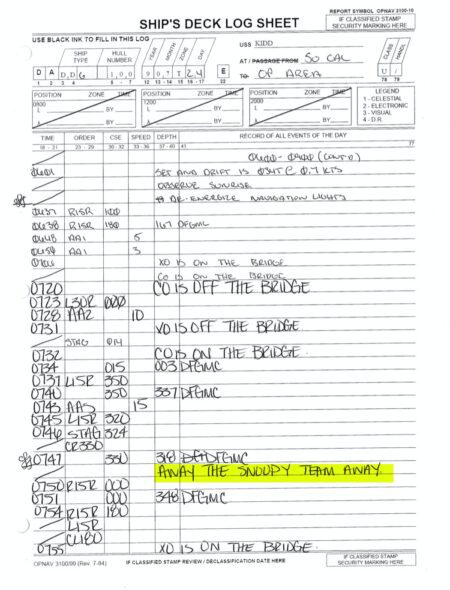 REPORT SYMBOL OPNAV 3100-10
SHIP'S DECK LOG SHEET
IF CLASSIFIED STAMP
SECURITY MARKING HERE
USE BLACK INK TO FILL IN THIS LOG
SHIP TYPE
HULL NUMBER
YEAR
MONTH
ZONE
DAY
USS KIDD
AT / PASSAGE FROM SO CAL
TO OP AREA
CLASS
HANDL
D A D D G 1 0 0
E
U
POSITION ZONE TIME
0800
L BY
λ BY
POSITION ZONE TIME
1200
L BY
λ BY
POSITION ZONE TIME
2000
L BY
λ BY
LEGEND
1 - CELESTIAL
2 - ELECTRONIC
3 - VISUAL
4 - D.R.
TIME ORDER CSE SPEED DEPTH RECORD OF ALL EVENTS OF THE DAY
(CONT'D)
SET AND DRIFT IS 034T @ 0.7 KTS
OBSERVE SUNRISE
DE-ENERGIZE NAVIGATION LIGHTS
0637 R15R
0638 R15R 180 167 DFGMC
0648 AA1 5
AA1 3
XO IS ON THE BRIDGE
CO IS ON THE BRIDGE
0720 CO IS OFF THE BRIDGE
0723 L30R 000
0728 AA2 10
0731 XO IS OFF THE BRIDGE
STAG 014
0732 CO IS ON THE BRIDGE.
0734 015 003 DFGMC
0737 L15R 350
0740 350 337 DFGMC
0743 AAS 15
0745 L15R 320
0746 STAG 324
CR330
0747 330 318 DFGMC
AWAY THE SNOOPY TEAM AWAY.
0750 R15R 000
0751 000 348 DFGMC
0754 R15R 180
L15R
CL180
0755 XO IS ON THE BRIDGE.
OPNAV 3100/99 (Rev. 7-84)
IF CLASSIFIED STAMP REVIEW / DECLASSIFICATION DATE HERE
IF CLASSIFIED STAMP
SECURITY MARKING HERE